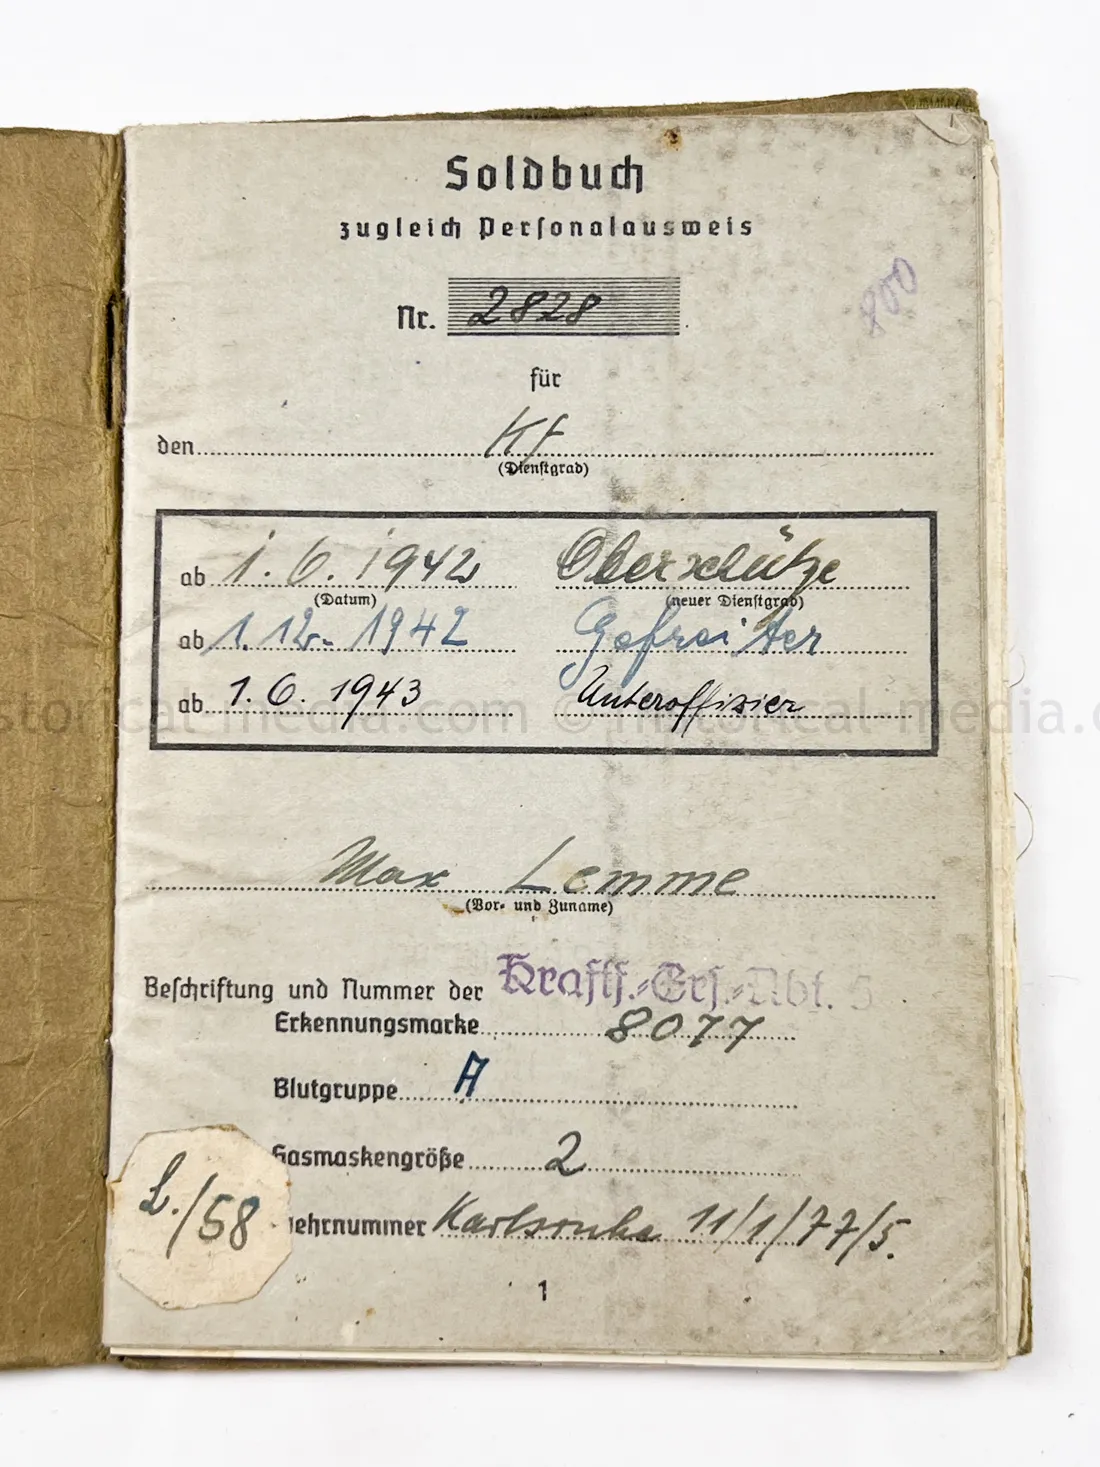 Soldbuch
zugleich Personalausweis
Nr. 2828
800
für
den Kf
(Dienstgrad)
ab 1.6.1942 Oberschütze
(Datum) (neuer Dienstgrad)
ab 1.12.1942 Gefreiter
ab 1.6.1943 Unteroffizier
historical-media.com © historical-media.c
Max Lemme
(Vor- und Zuname)
Beschriftung und Nummer der Kraftf.-Ers.-Abt. 5
Erkennungsmarke 8077
Blutgruppe A
Gasmaskengröße 2
L./58
ehrnummer Karlsruhe 11/1/77/5.
1